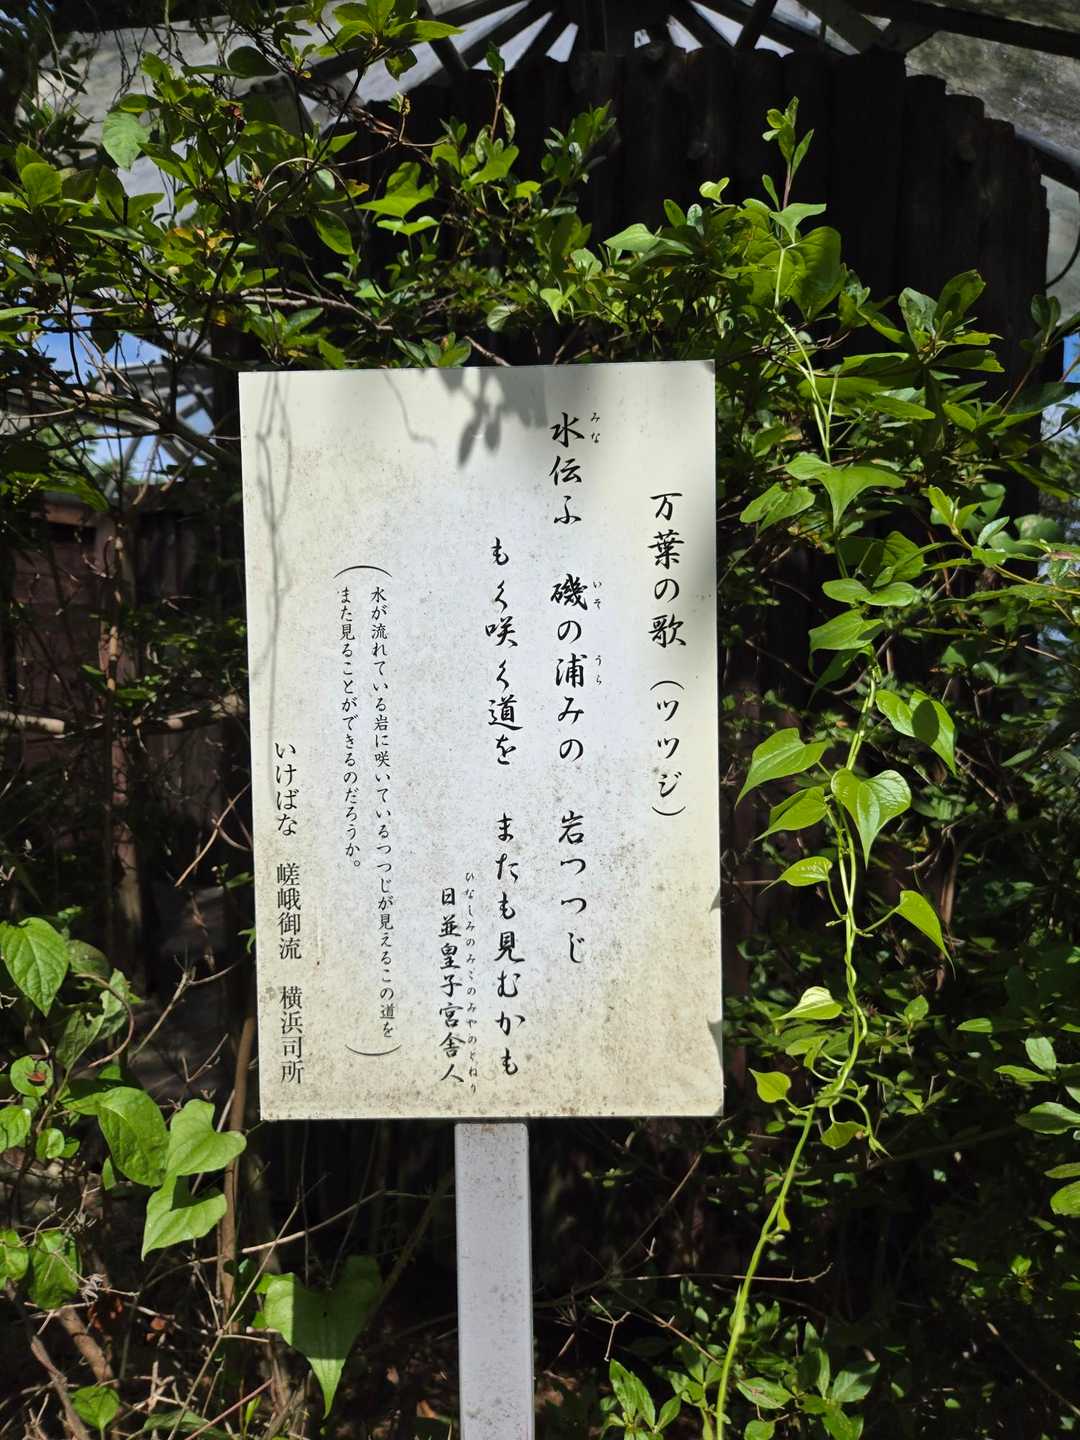 万葉の歌（ツツジ）
みな いそ うら
水伝ふ 磯の浦みの 岩つつじ
もく咲く道を またも見むかも
ひなしみのみこのみやのとねり
日並皇子宮舎人
（水が流れている岩に咲いているつつじが見えるこの道を
また見ることができるのだろうか。）
いけばな 嵯峨御流 横浜司所